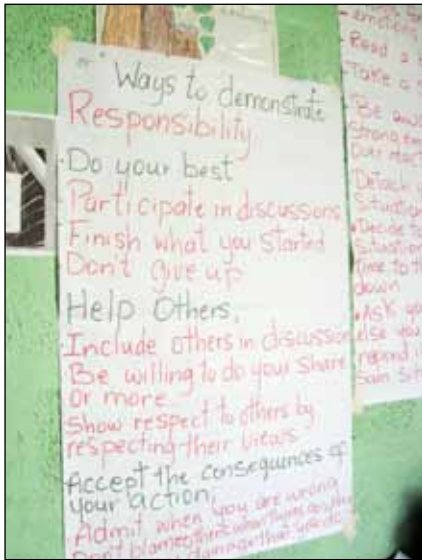 "Ways to demonstrate
Responsibility
Do your best
Participate in discussions
Finish what you started
Don't give up
Help Others.
Include others in discussion
Be willing to do your share
or more
Show respect to others by
respecting their views
Accept the consequences of
your action.
Admit when you are wrong
Don't blame others when
emotions
Read a
Take a
Be
Strong
Over
Detach
Situation
Decide to
Situation
time to
down
Ask you
else you
respond
Sain